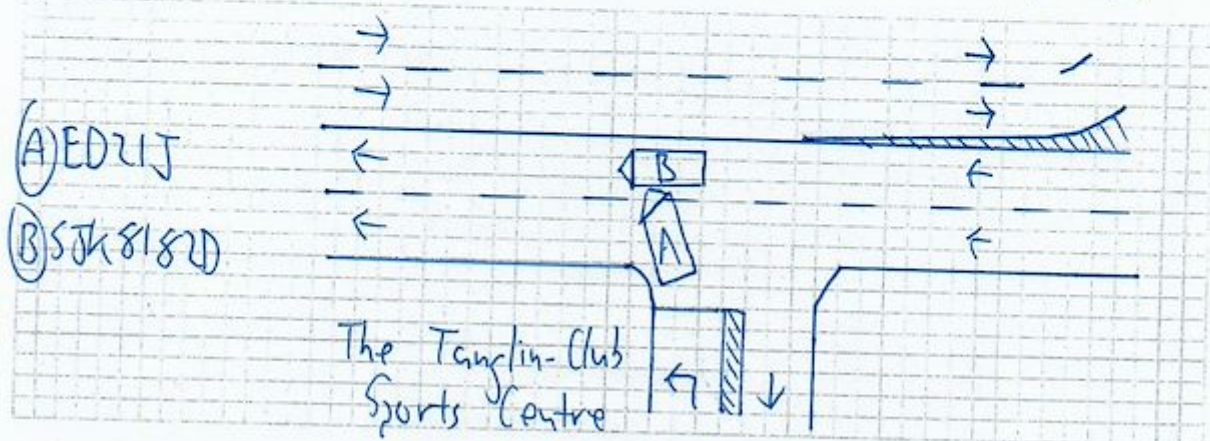 (A) ED21J
(B) SJK8182D
B
A
The Tanglin-Club
Sports Centre